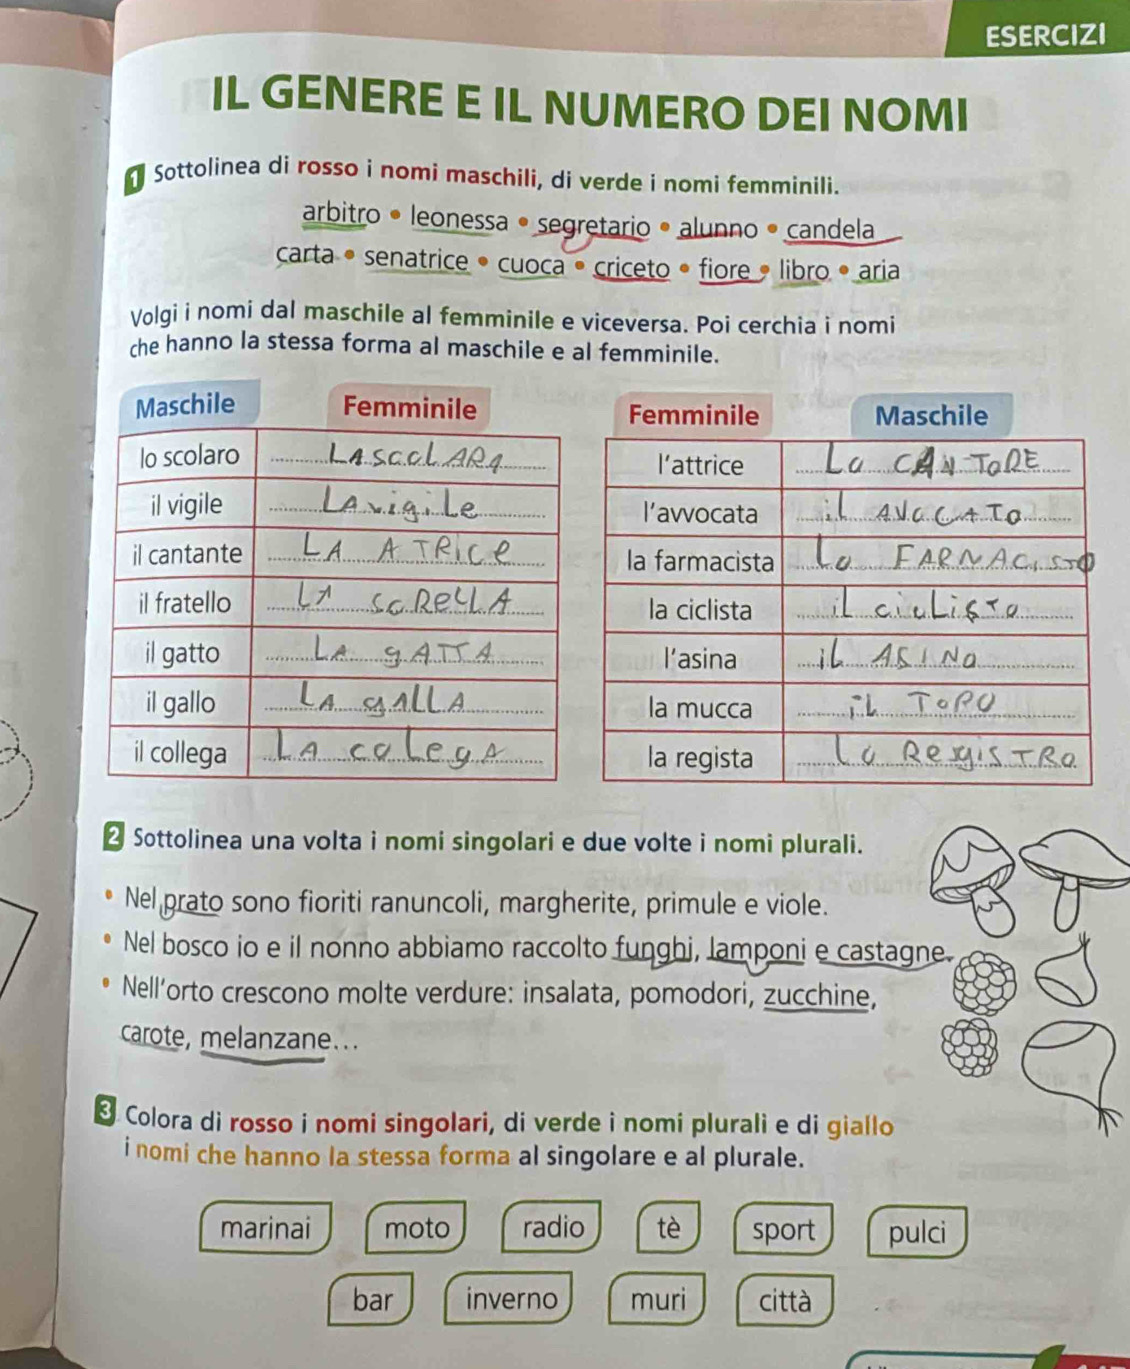 ESERCIZI
IL GENERE E IL NUMERO DEI NOMI
1 Sottolinea di rosso i nomi maschili, di verde i nomi femminili.
arbitro • leonessa • segretario • alunno • candela
carta • senatrice • cuoca • criceto • fiore • libro • aria
Volgi i nomi dal maschile al femminile e viceversa. Poi cerchia i nomi
che hanno la stessa forma al maschile e al femminile.
Maschile Femminile
lo scolaro LA SCOLARA
il vigile LA vigiLe
il cantante LA ATRICe
il fratello LA SOReLLA
il gatto LA gATTA
il gallo LA gALLA
il collega LA coLegA
Femminile Maschile
l'attrice Lo CANToRE
l'avvocata il AVOCATO
la farmacista Lo FARNACiSTO
la ciclista iL ciCLiSTO
l'asina iL ASINO
la mucca iL ToRO
la regista Lo RegiSTRO
2 Sottolinea una volta i nomi singolari e due volte i nomi plurali.
• Nel prato sono fioriti ranuncoli, margherite, primule e viole.
• Nel bosco io e il nonno abbiamo raccolto funghi, lamponi e castagne.
• Nell'orto crescono molte verdure: insalata, pomodori, zucchine,
carote, melanzane...
3 Colora di rosso i nomi singolari, di verde i nomi plurali e di giallo
i nomi che hanno la stessa forma al singolare e al plurale.
marinai moto radio tè sport pulci
bar inverno muri città